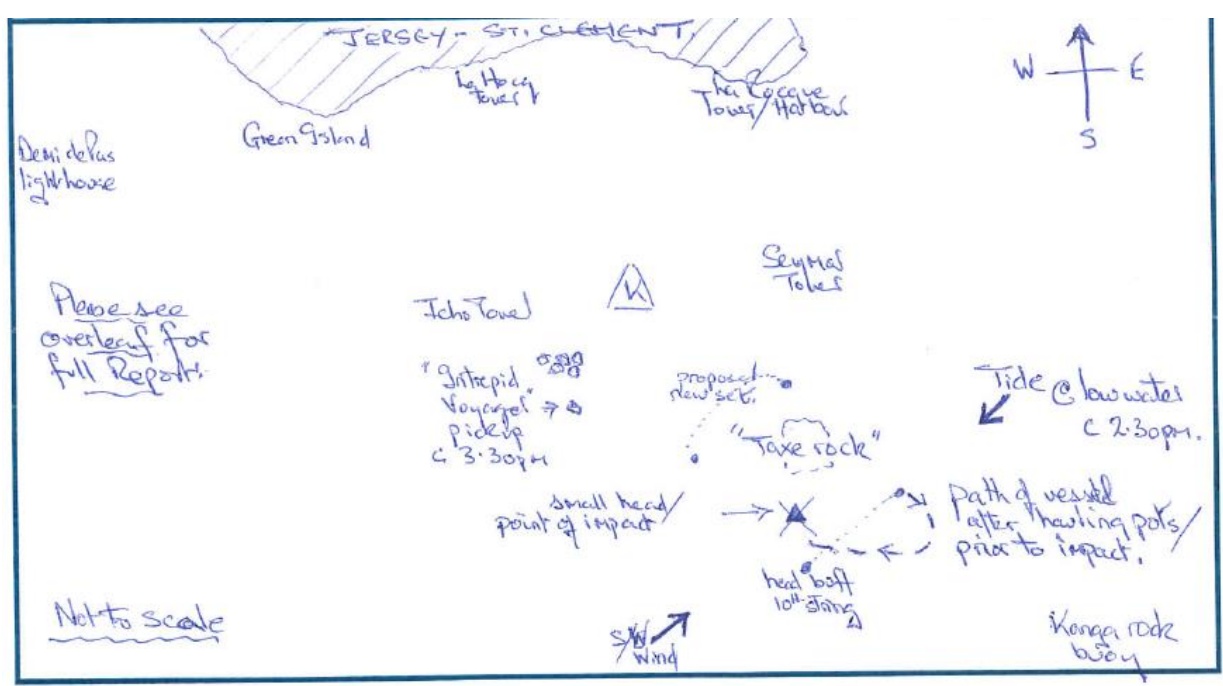 JERSEY - ST. CLEMENT.
La Hocq
Tower
La Rocque
Tower/Harbour
Green Island
W
E
S
Demi de Pas
lighthouse
Seymour
Tower
Please see
overleaf for
full Report.
Icho Tower
K
"Intrepid
Voyager"
pickup
c 3.30pm
proposed
new set.
Tide @ low water
c 2.30pm.
"Taxe rock"
small head/
point of impact
path of vessel
after hauling pots/
prior to impact.
head buff
10th string
Not to scale
S/W
Wind
Konga rock
buoy